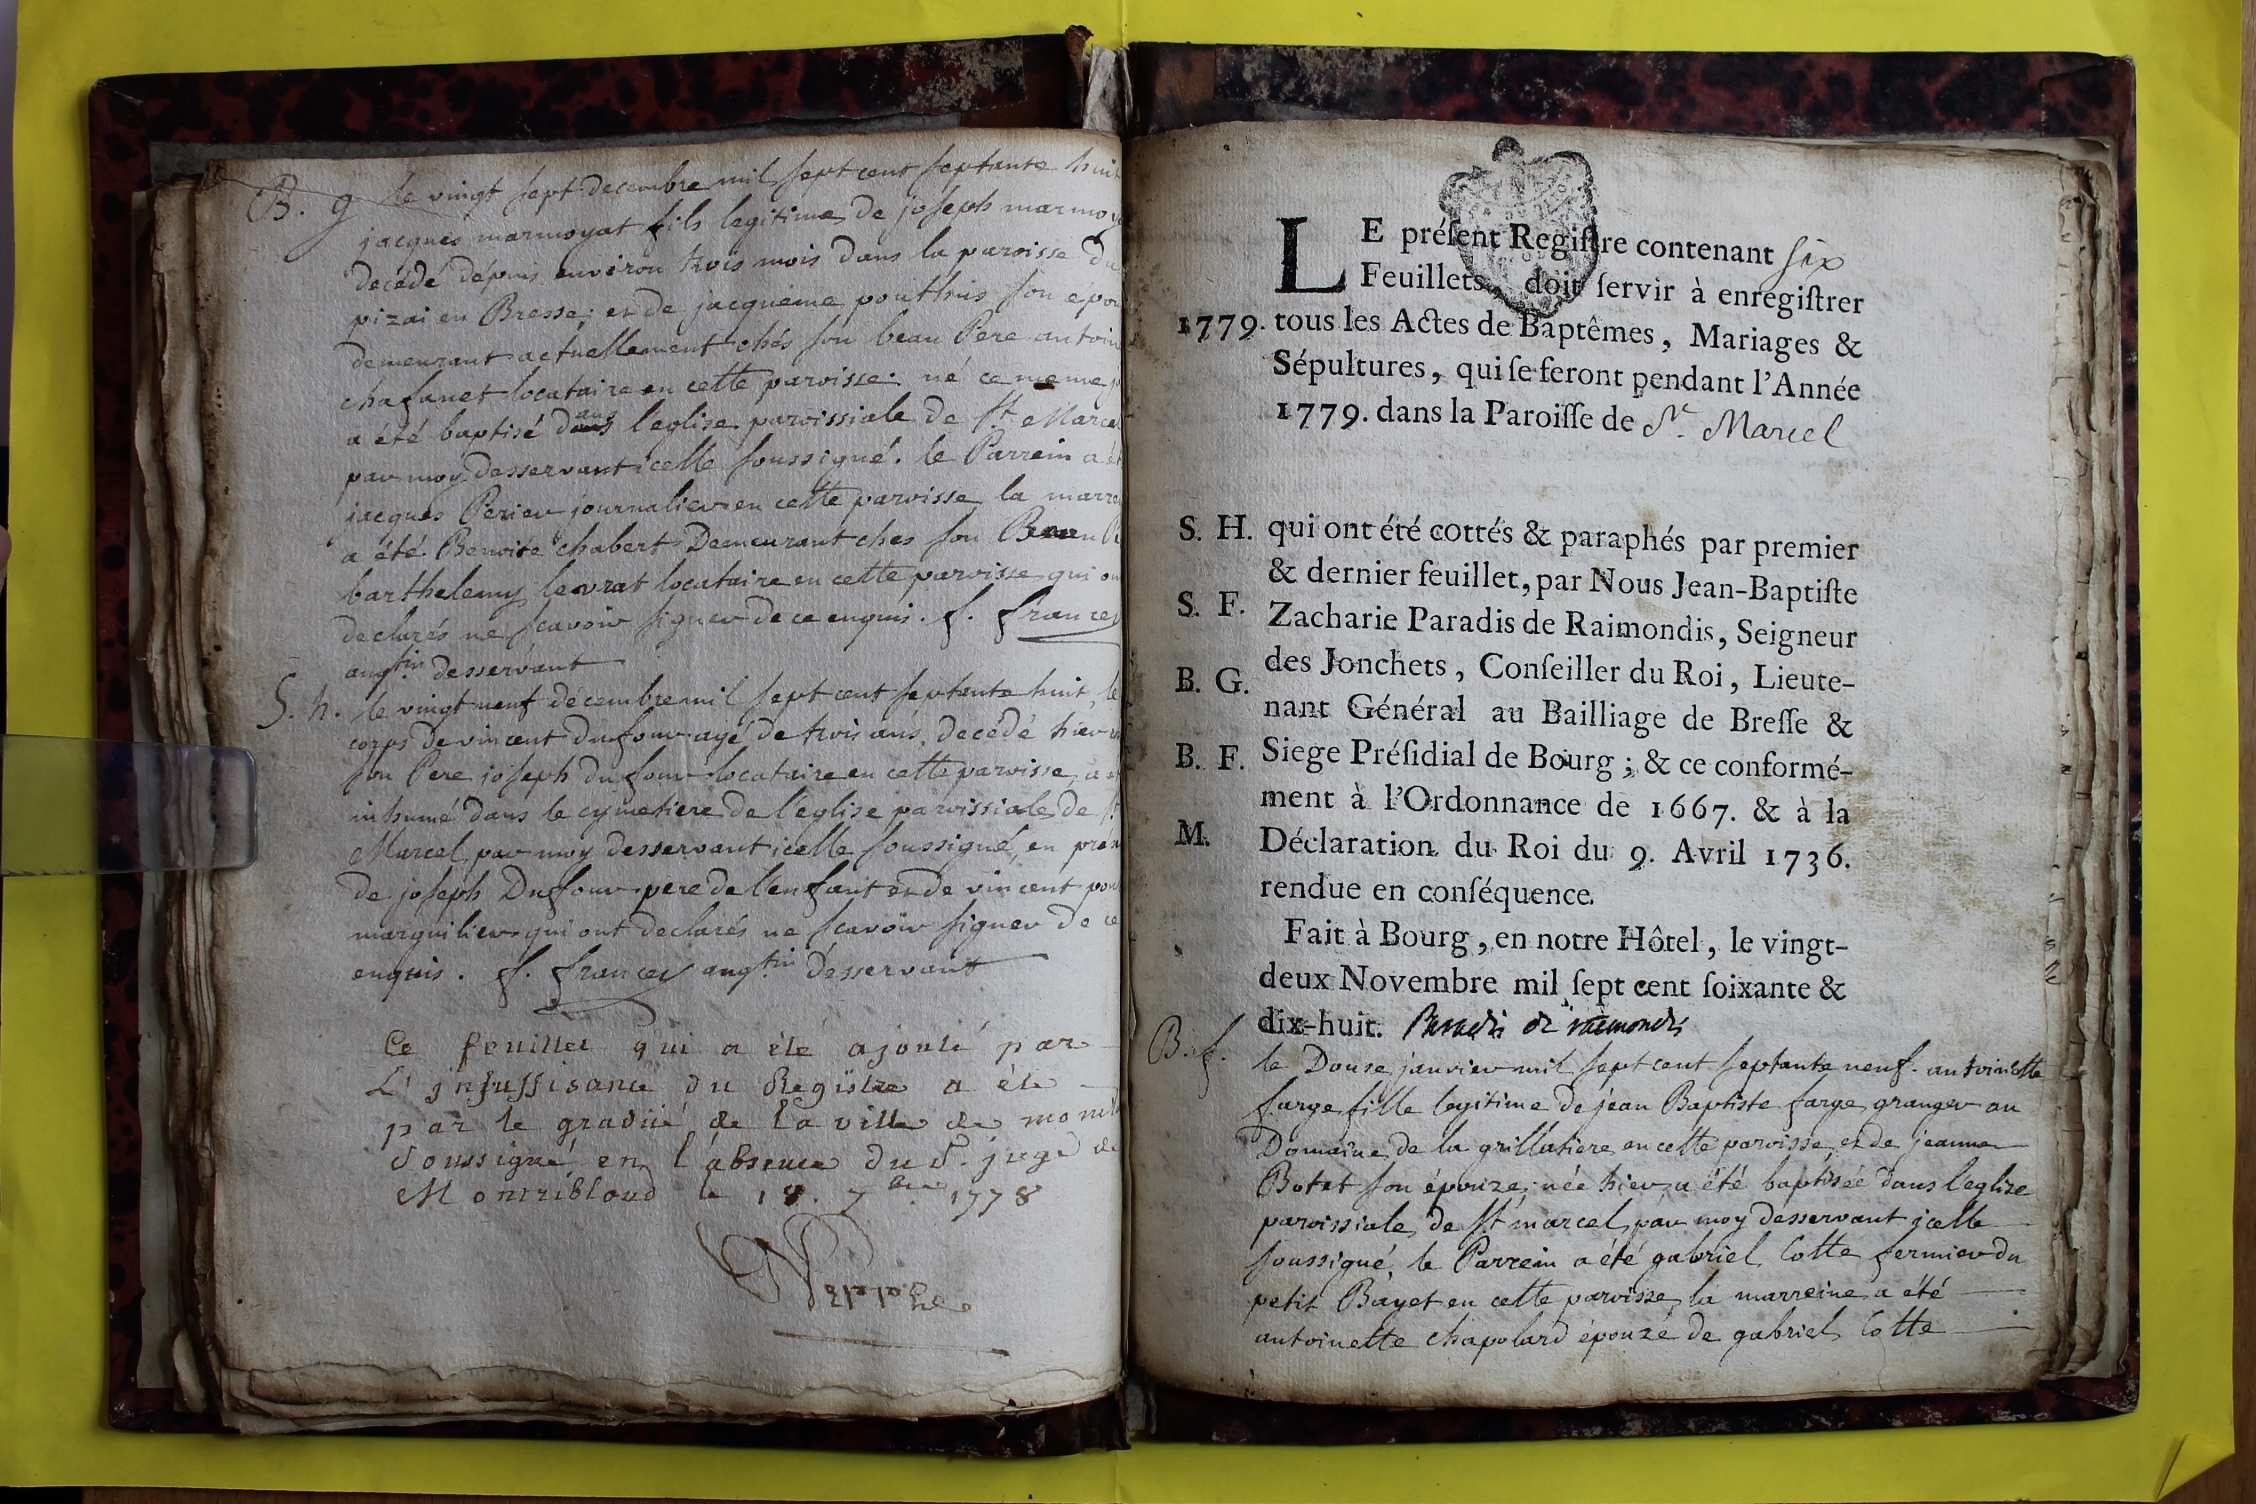 B. g le vingt sept decembre mil sept cent septante huit
jacques marmoyat fils legitime de joseph marmoy
decédé depuis environ trois mois dans la paroisse du
pizai en Bresse; et de jacqueme pouthus son epou
demeurant actuellement chés son beau Pere antoin
chafanet locataire en cette paroisse. né ce meme j
a été baptisé dans l'eglise paroissiale de St Marcel
par moy desservant icelle soussigné. le Parrein a ét
jacques Perier journalier en cette paroisse la marre
a été Benoite chabert Demeurant ches son Beau P
barthelemy levrat locataire en cette paroisse qui on
declarés ne scavoir signer de ce enquis. f. francey
augtin desservant
S. h. le vingt neuf décembre mil sept cent septante huit, le
corps de vincent dufour agé de trois ans, decédé hier
son Pere joseph dufour locataire en cette paroisse, a
inhumé dans le cymetiere de l'eglise paroissiale de St
Marcel, par moy desservant icelle soussigné, en prés
de joseph Duffour pere de l'enfant et de vincent pou
marguilier qui ont declarés ne scavoir signer de ce
enquis. f. francey augtin desservant
Ce feuillet qui a été ajouté par
L'insuffisance du Registre a été
par le gradué de la ville de montl
Soussigné en l'absence du S. juge de
Montribloud le 18. 7bre 1778
LE préſent Regiſtre contenant six
Feuillets, doit ſervir à enregiſtrer
1779. tous les Actes de Baptêmes, Mariages &
Sépultures, qui ſe feront pendant l'Année
1779. dans la Paroiſſe de St. Marcel
S. H. qui ont été cottés & paraphés par premier
& dernier feuillet, par Nous Jean-Baptiſte
S. F. Zacharie Paradis de Raimondis, Seigneur
des Jonchets, Conſeiller du Roi, Lieute-
B. G. nant Général au Bailliage de Breſſe &
B. F. Siege Préſidial de Bourg; & ce conformé-
ment à l'Ordonnance de 1667. & à la
M. Déclaration du Roi du 9. Avril 1736.
rendue en conſéquence.
Fait à Bourg, en notre Hôtel, le vingt-
deux Novembre mil ſept cent ſoixante &
dix-huit. Paradis de raimondis
B. f. le Douze janvier mil sept cent septante neuf. antoinette
farge fille legitime de jean Baptiste farge granger au
Domaine de la grillatiere en cette paroisse, et de jeanne
Botet son épouze; née hier, a été baptisée dans l'eglize
paroissiale de St marcel, par moy desservant jcelle
soussigné, le Parrein a été gabriel Cotte fermier du
petit Bayet en cette paroisse, la marreine a été
antoinette chapolard épouze de gabriel Cotte